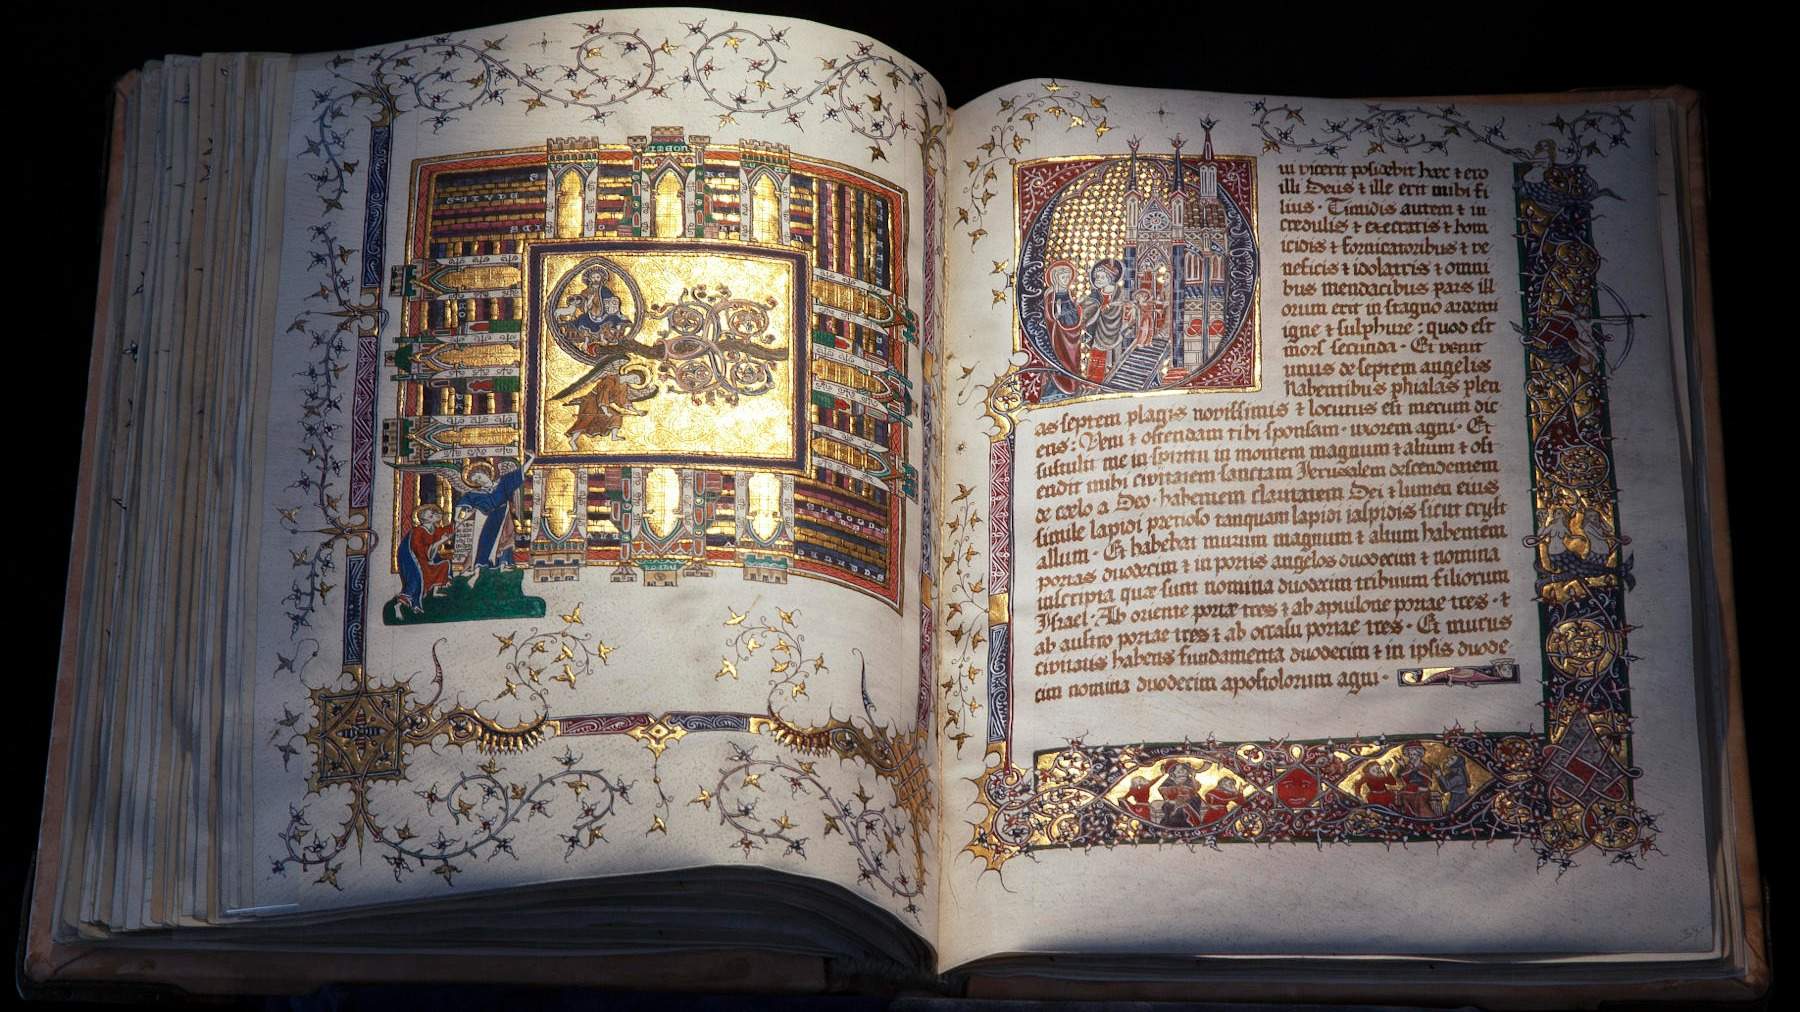 Qui vicerit posidebit hæc ⁊ ero
illi Deus ⁊ ille erit mihi fi
lius · Timidis autem ⁊ in
credulis ⁊ execratis ⁊ hom
icidis ⁊ fornicatoribus ⁊ ve
neficis ⁊ idolatris ⁊ omni
bus mendacibus pars ill
orum erit in stagno ardenti
igne ⁊ sulphure : quod est
mors secunda · Et venit
unus de septem angelis
habentibus phialas plen
as septem plagis novissimis ⁊ locutus est mecum dic
ens : Veni ⁊ ostendam tibi sponsam · uxorem agni · Et
sustulit me in spiritu in montem magnum ⁊ altum ⁊ ost
endit mihi civitatem sanctam Jerusalem descendentem
de cœlo a Deo · habentem claritatem Dei ⁊ lumen eius
simile lapidi prætioso tanquam lapidi iaspidis sicut cryst
allum · Et habebat murum magnum ⁊ altum habentem
portas duodecim ⁊ in portis angelos duodecim ⁊ nomina
inscripta quæ sunt nomina duodecim tribuum filiorum
Israel · Ab oriente portæ tres ⁊ ab aquilone portae tres · ⁊
ab austro portae tres ⁊ ab occasu portae tres · Et murus
civitatis habens fundamenta duodecim ⁊ in ipsis duode
cim nomina duodecim apostolorum agni ·